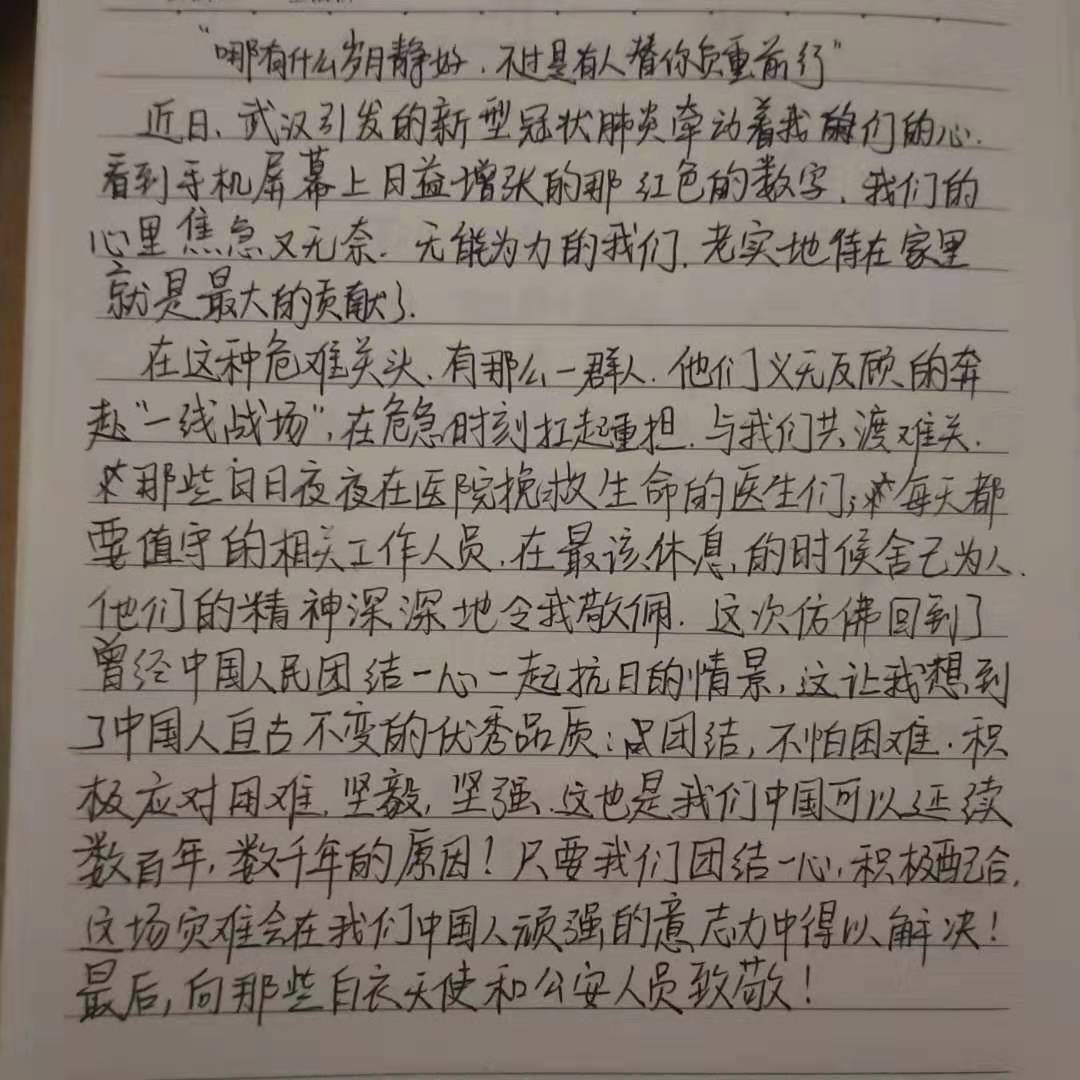 “哪有什么岁月静好，不过是有人替你负重前行”
近日、武汉引发的新型冠状肺炎牵动着我们的心.
看到手机屏幕上日益增张的那红色的数字、我们的
心里焦急又无奈.无能为力的我们、老实地待在家里
就是最大的贡献了.
在这种危难关头、有那么一群人.他们义无反顾的奔
赴“一线战场”,在危急时刻扛起重担.与我们共渡难关.
那些白日夜夜在医院挽救生命的医生们;每天都
要值守的相关工作人员.在最该休息的时候舍己为人.
他们的精神深深地令我敬佩.这次仿佛回到了
曾经中国人民团结一心一起抗日的情景,这让我想到
了中国人自古不变的优秀品质:团结,不怕困难.积
极应对困难.坚毅,坚强、这也是我们中国可以延续
数百年,数千年的原因!只要我们团结一心,积极配合,
这场灾难会在我们中国人顽强的意志力中得以解决!
最后,向那些白衣天使和公安人员致敬!